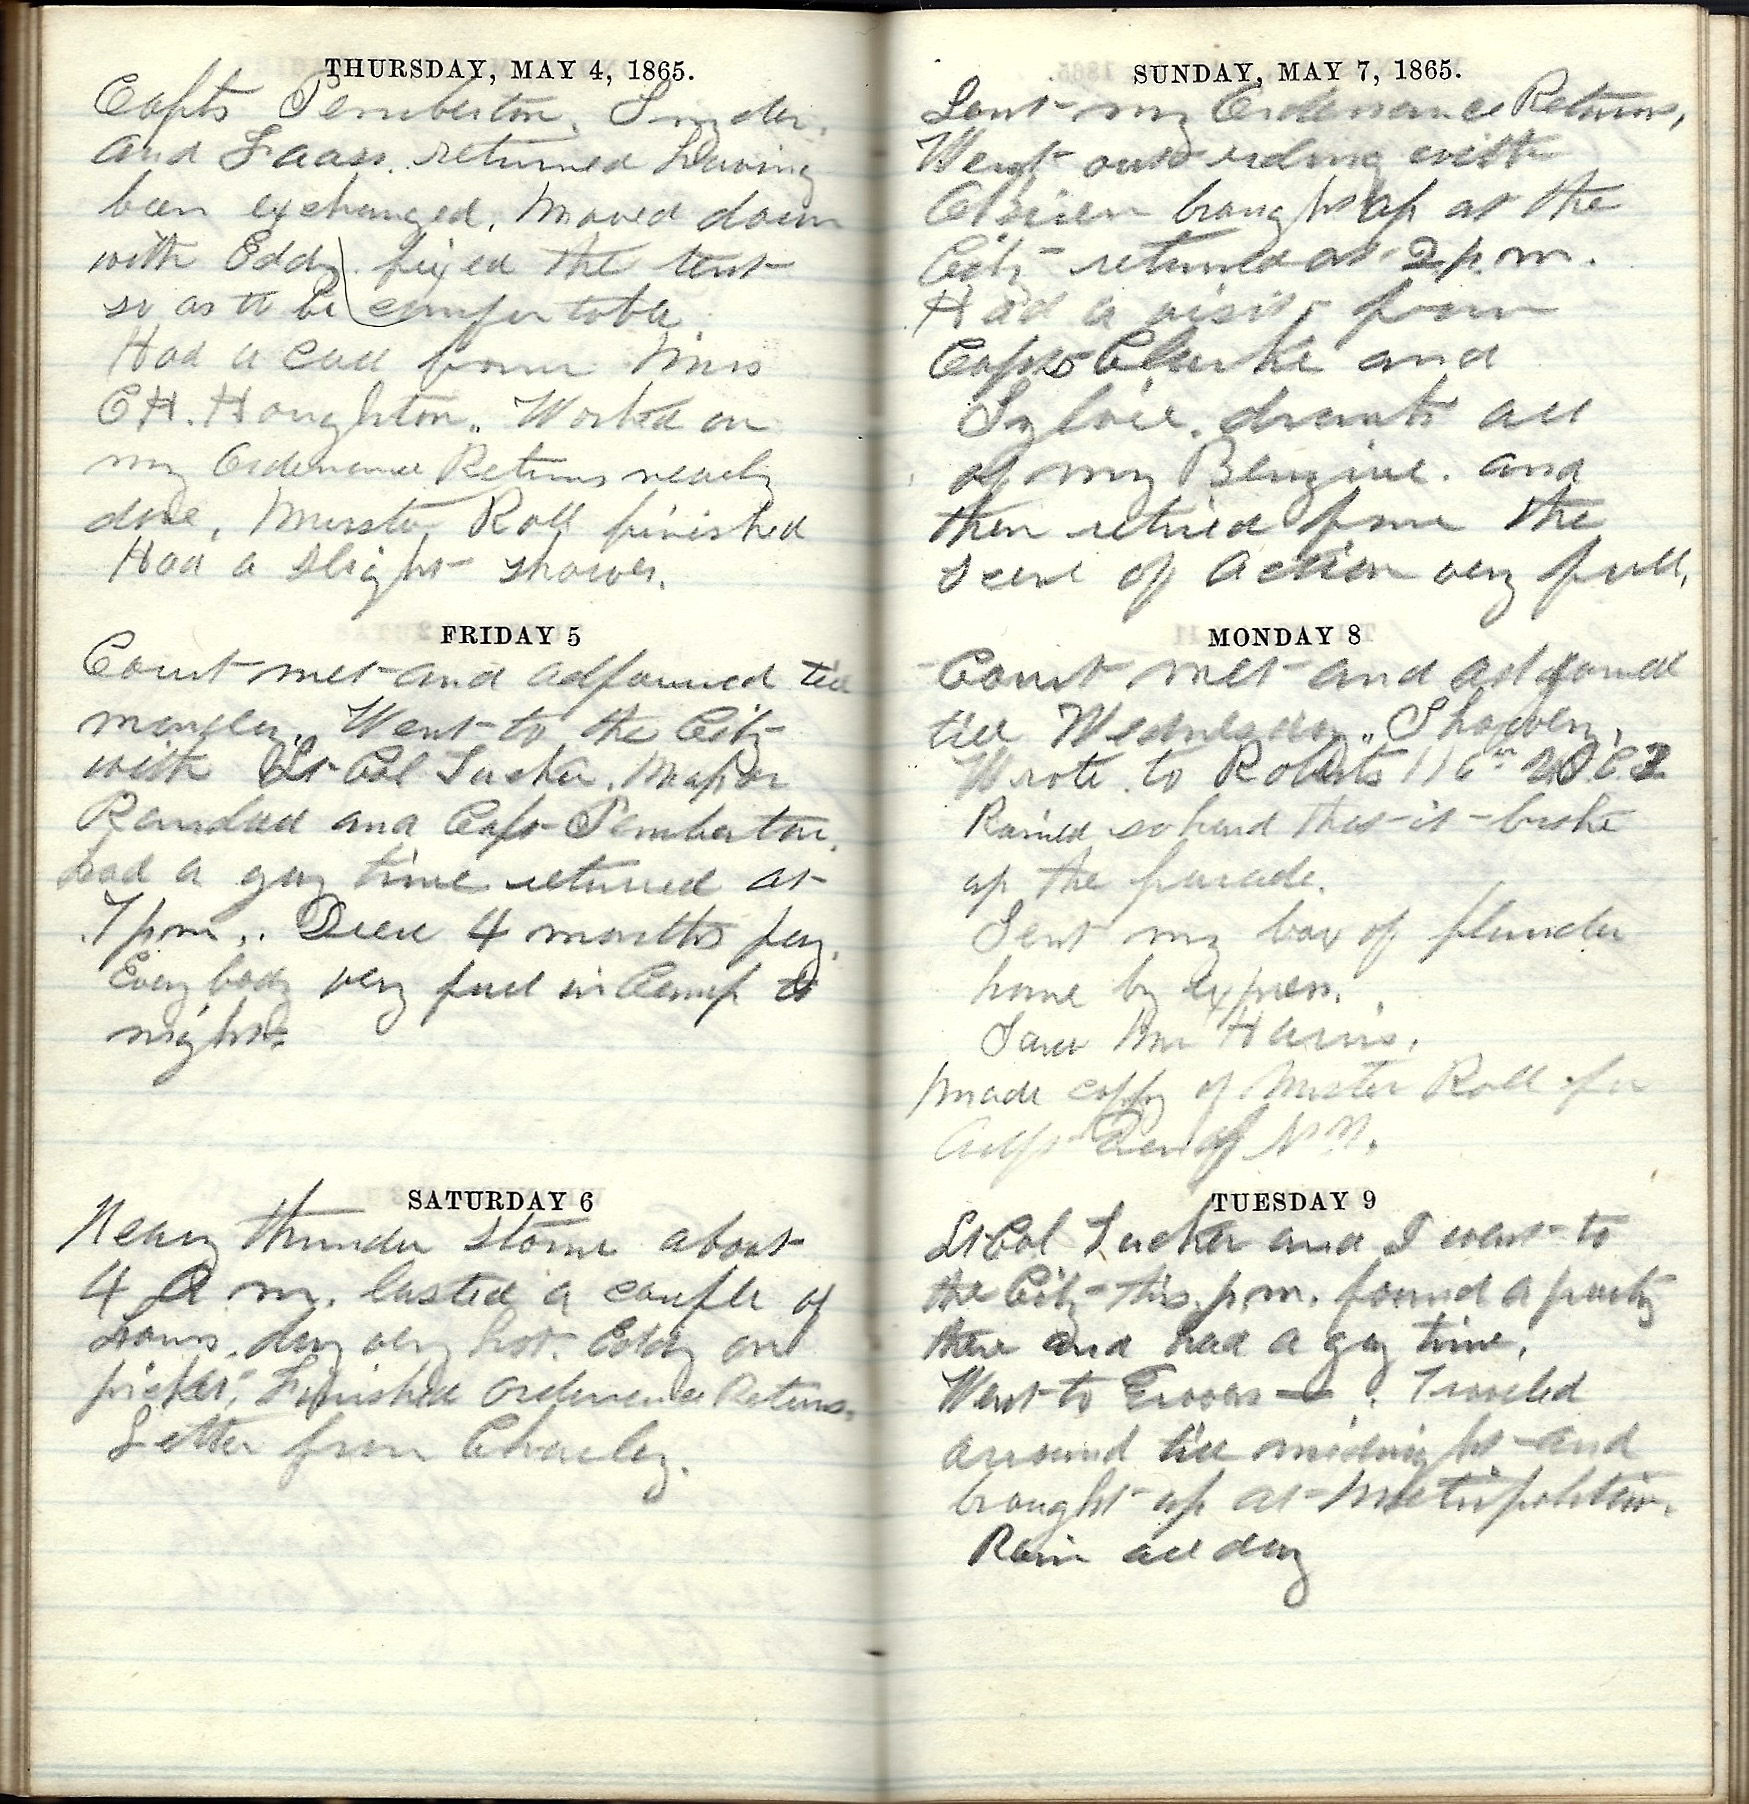 THURSDAY, MAY 4, 1865.
Capts Pemberton, Snyder,
and Faass. returned having
been exchanged. Moved down
with Eddy fixed the tent
so as to be comfortable.
Had a call from Miss
C H. Houghton. Worked on
my Ordenance Returns nearly
done, Muster Roll finished
Had a slight shower.
FRIDAY 5
Court met and adjourned till
monday. Went to the City
with Lt Col Tucker. Major
Randall and Capt Pemberton.
had a gay time returned at
7 pm. 4 months pay.
Every body very full in Camp to
night.
SATURDAY 6
Heavy thunder storm about
4 A m. lasted a couple of
hours. day very hot. Eddy on
picket. Finished Ordenance Returns.
Letter from Charley.
SUNDAY, MAY 7, 1865.
Sent my Ordenance Returns,
Went out riding with
OBrien brought up at the
City returned at 2 p. m.
Had a visit from
Capts Clarke and
drank all
of my Benzine. and
then retired from the
scene of action very full.
MONDAY 8
Court met and adjourned
till Wednesday. Showery.
Wrote to Roberts 116th
Rained so hard that it broke
up the parade.
Sent my box of plunder
home by express.
Saw Mr Harris.
Made coppy of Muster Roll for
Adjt Gen of
TUESDAY 9
Lt Col Tucker and I went to
the City this p. m. found a party
there and had a gay time.
Went to Grovers. Traveled
arround till midnight and
brought up at Metripolitan.
Rain all day